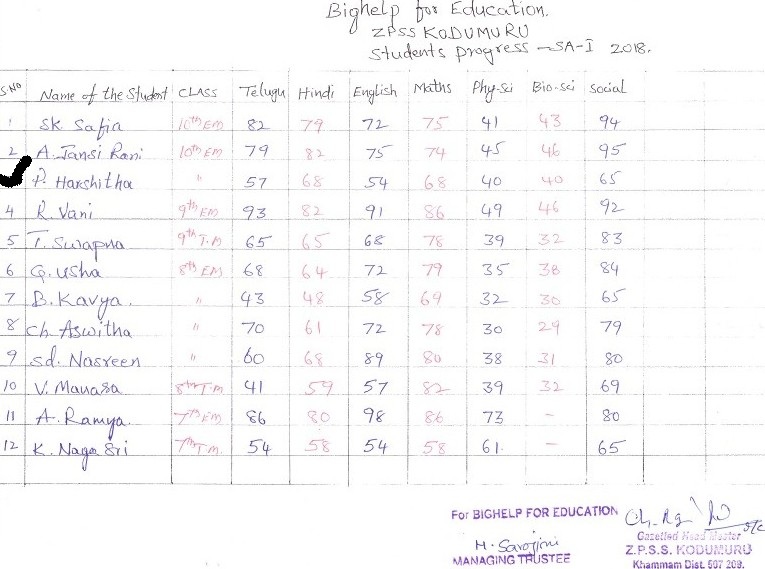 Bighelp for Education.
ZPSS KODUMURU
Students progress - SA-I 2018.
S.NO Name of the Student CLASS Telugu Hindi English Maths Phy-Sci Bio-sci Social
1 SK. Safia 10th EM 82 79 72 75 41 43 94
2 A. Jansi Rani 10th EM 79 82 75 74 45 46 95
P. Harshitha " 57 68 54 68 40 40 65
4 R. Vani 9th EM 93 82 91 86 49 46 92
5 T. Swapna 9th T.M 65 65 68 78 39 32 83
6 G. Usha 8th EM 68 64 72 79 35 38 84
7 B. Kavya. " 43 48 58 69 32 30 65
8 Ch. Aswitha " 70 61 72 78 30 29 79
9 Sd. Nasreen " 60 68 89 80 38 31 80
10 V. Manasa 8th T.M 41 59 57 82 39 32 69
11 A. Ramya. 7th EM 86 80 98 86 73 - 80
12 K. Naga Sri 7th T.M. 54 58 54 58 61. - 65
For BIGHELP FOR EDUCATION
M. Sarojini
MANAGING TRUSTEE
Gazetted Head Master
Z.P.S.S. KODUMURU
Khammam Dist. 507 209.